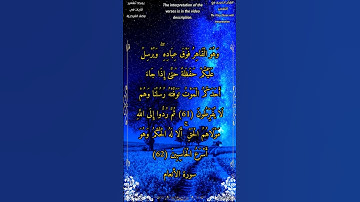 The interpretation of the
verses is in the video
description.
وَهُوَ الْقَاهِرُ فَوْقَ عِبَادِهِ ۖ وَيُرْسِلُ
عَلَيْكُمْ حَفَظَةً حَتَّىٰ إِذَا جَاءَ
أَحَدَكُمُ الْمَوْتُ تَوَفَّتْهُ رُسُلُنَا وَهُمْ
لَا يُفَرِّطُونَ (61) ثُمَّ رُدُّوا إِلَى اللَّهِ
مَوْلَاهُمُ الْحَقِّ ۚ أَلَا لَهُ الْحُكْمُ وَهُوَ
أَسْرَعُ الْحَاسِبِينَ (62)
سورة الأنعام